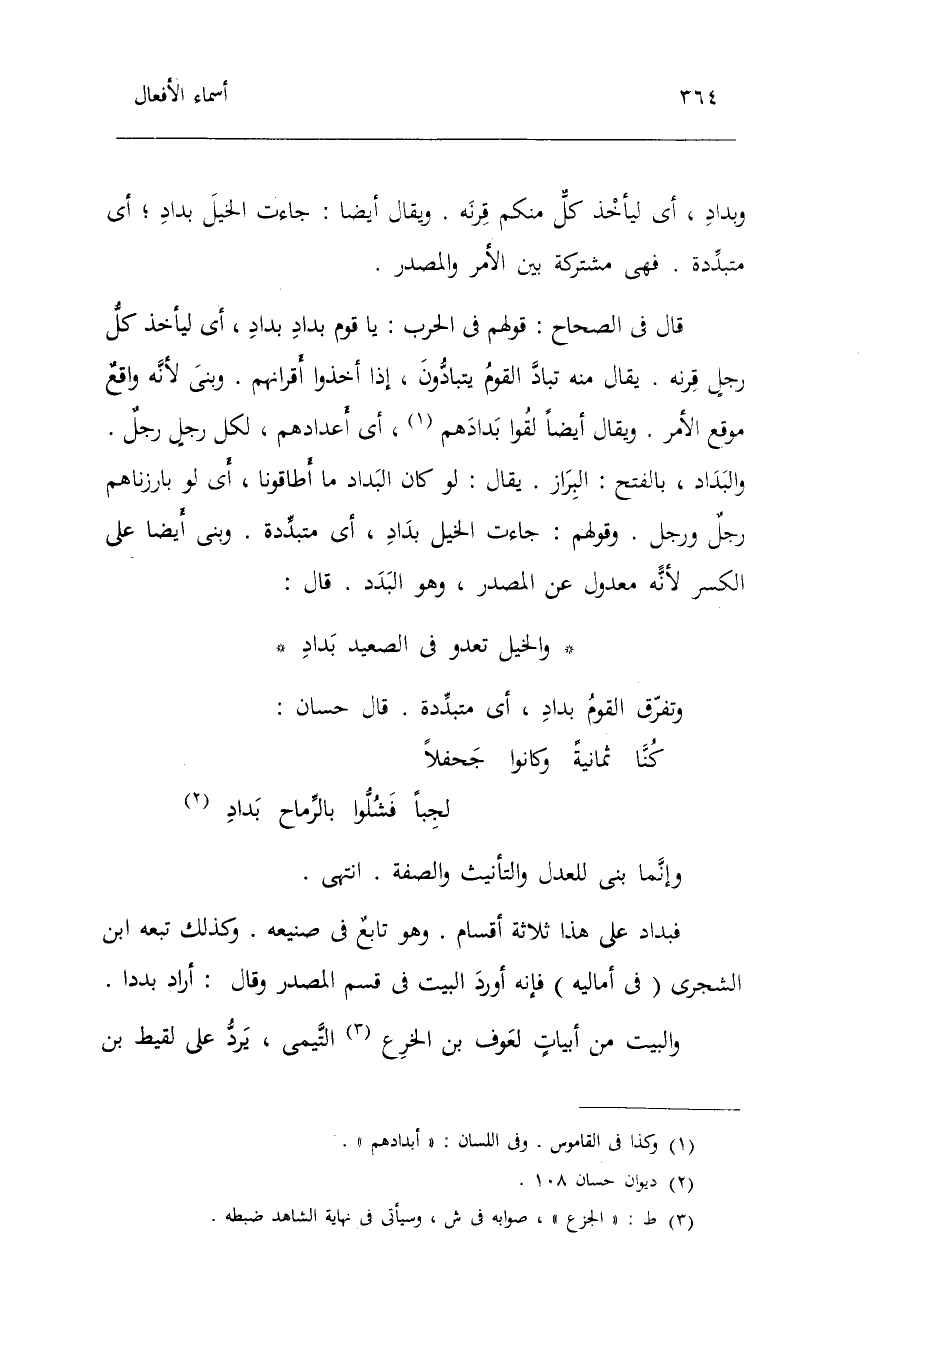 ٣٦٤ أسماء الأفعال
وبدادِ ، أى ليأخْذ كلٌّ منكم قِرنَه . ويقال أيضا : جاءت الخيلَ بدادِ ؛ أى
متبدِّدة . فهى مشتركة بين الأمر والمصدر .
قال فى الصحاح : قولهم فى الحرب : يا قوم بدادِ بدادِ ، أى ليأخذ كلُّ
رجلٍ قِرنه . يقال منه تبادَّ القومُ يتبادُّونَ ، إذا أخذوا أَقرانهم . وبنىَ لأنَّه واقعٌ
موقع الأمر . ويقال أيضاً لقُوا بَدادَهم (١) ، أى أَعدادهم ، لكل رجلٍ رجلٌ .
والبَدَاد ، بالفتح : البِرَاز . يقال : لو كان البَداد ما أَطاقونا ، أَى لو بارزناهم
رجلٌ ورجل . وقولهم : جاءت الخيل بدَادِ ، أى متبدِّدة . وبنى أَيضا على
الكسر لأنَّه معدول عن المصدر ، وهو البَدَد . قال :
* والخيل تعدو فى الصعيد بَدادِ *
وتفرّق القومُ بدادِ ، أى متبدِّدة . قال حسان :
كُنَّا ثمانيةً وكانوا جَحفلاً
لجِباً فَشُلُّوا بالرِّماح بَدادِ (٢)
وإنَّما بنى للعدل والتأنيث والصفة . انتهى .
فبداد على هذا ثلاثة أقسام . وهو تابعٌ فى صنيعه . وكذلك تبعه ابن
الشجرى ( فى أماليه ) فإنه أوردَ البيت فى قسم المصدر وقال : أراد بددا .
والبيت من أبياتٍ لعَوف بن الخرِع (٣) التَّيمى ، يَردُّ على لقيط بن
(١) وكذا فى القاموس . وفى اللسان : « أبدادهم » .
(٢) ديوان حسان ١٠٨ .
(٣) ط : « الجزع » ، صوابه فى ش ، وسيأتى فى نهاية الشاهد ضبطه .